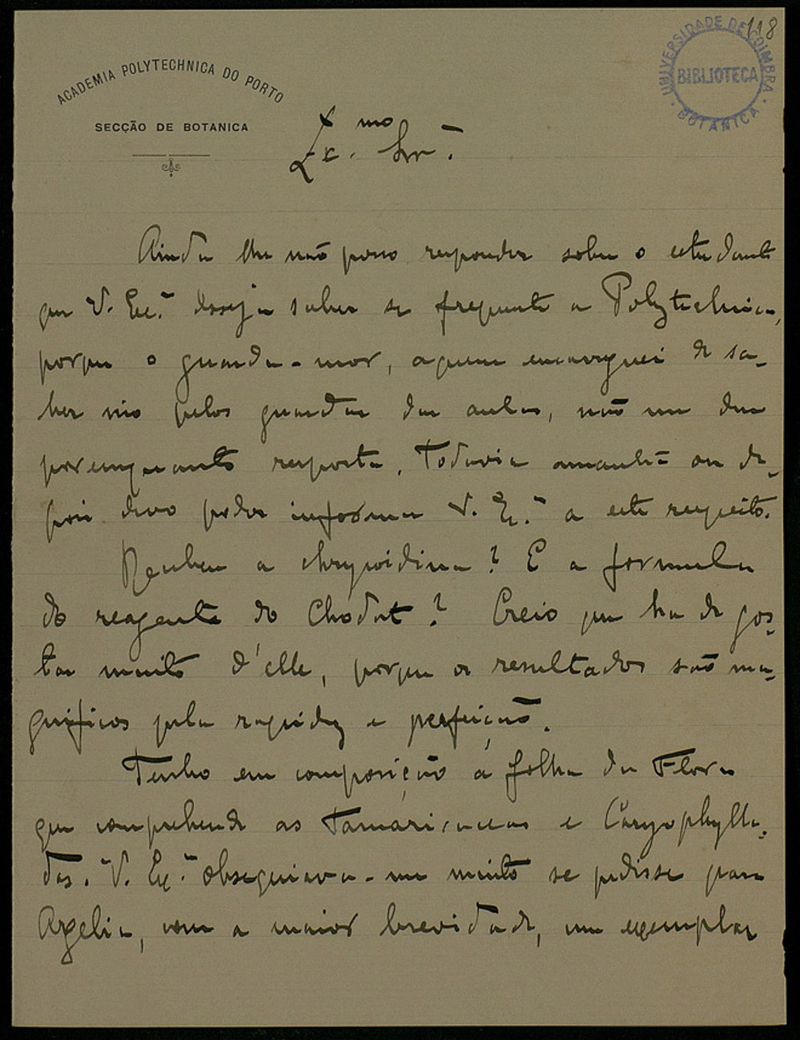 118
UNIVERSIDADE DE COIMBRA
BIBLIOTECA
BOTANICA
ACADEMIA POLYTECHNICA DO PORTO
SECÇÃO DE BOTANICA
Ex.mo Snr.
Ainda lhe não posso responder sobre o estudante
que V. Ex.ª deseja saber se frequenta a Polytechnica,
porque o guarda-mor, a quem encarreguei de sa-
ber isso pelos guardas das aulas, não me deu
por emquanto resposta. Todavia amanhã ou de-
pois devo poder informar V. Ex.ª a este respeito.
Recebeu a chrysoidina? E a formula
do reagente do Chodat? Creio que ha de gos-
tar muito d'elle, porque os resultados são ma-
gnificos pela rapidez e perfeição.
Tenho em composição a folha da Flora
que comprehende as Tamaricaceas e Caryophylla-
das. V. Ex.ª obsequiava-me muito se pedisse para
Argelia, com a maior brevidade, um exemplar